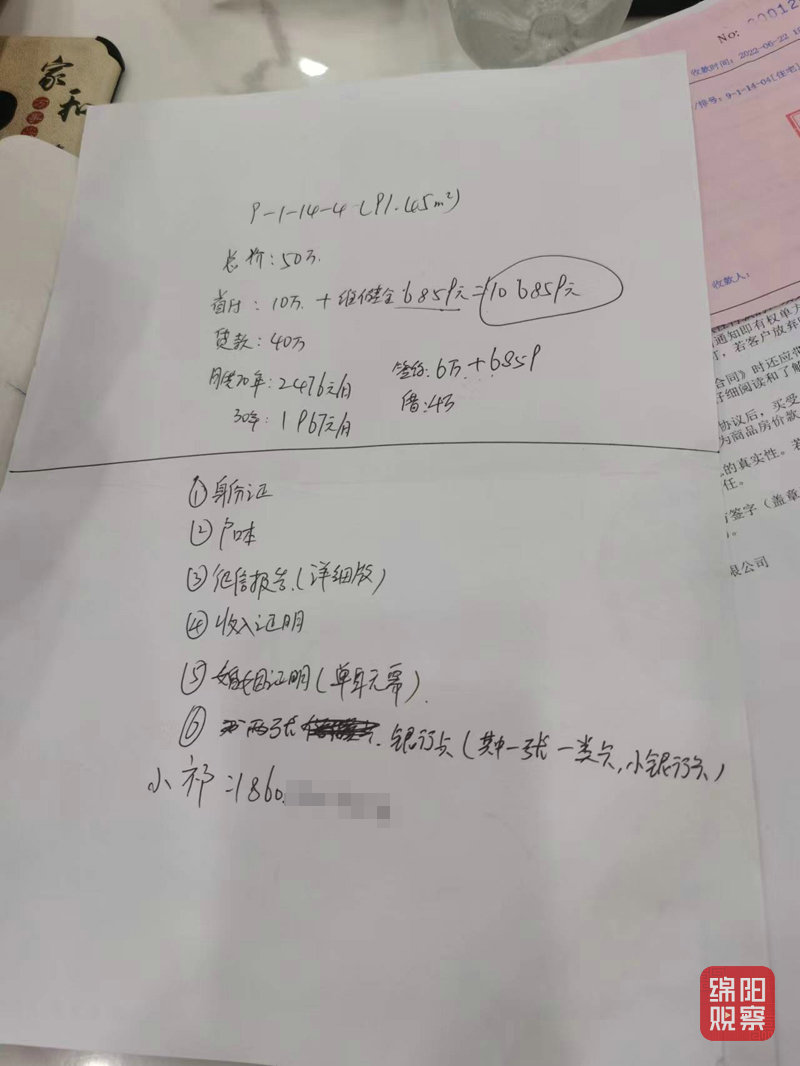 家和
No: 00012
收款时间: 2022-06-22 1
牌号: 9-1-14-04[住宅]
收款人:
9-1-14-4 (91.45m²)
总价: 50万
首付: 10万 + 维修基金6859元 = 106859元
贷款: 40万
月供20年: 2476元/月
签约: 6万 + 6859
30年: 1967元/月
借: 4万
通知即有权单方
,若客户放弃
合同》时还应带
仔细阅读和了解
协议后,买受
为商品房价款
的真实性。若
任。
签字(盖章
限公司
①身份证
②户口本
③征信报告(详细版)
④收入证明
⑤婚姻证明(单身无需)
⑥两张 银行卡(其中一张一类卡,小银行卡)
小祁: 1860
绵阳
观察